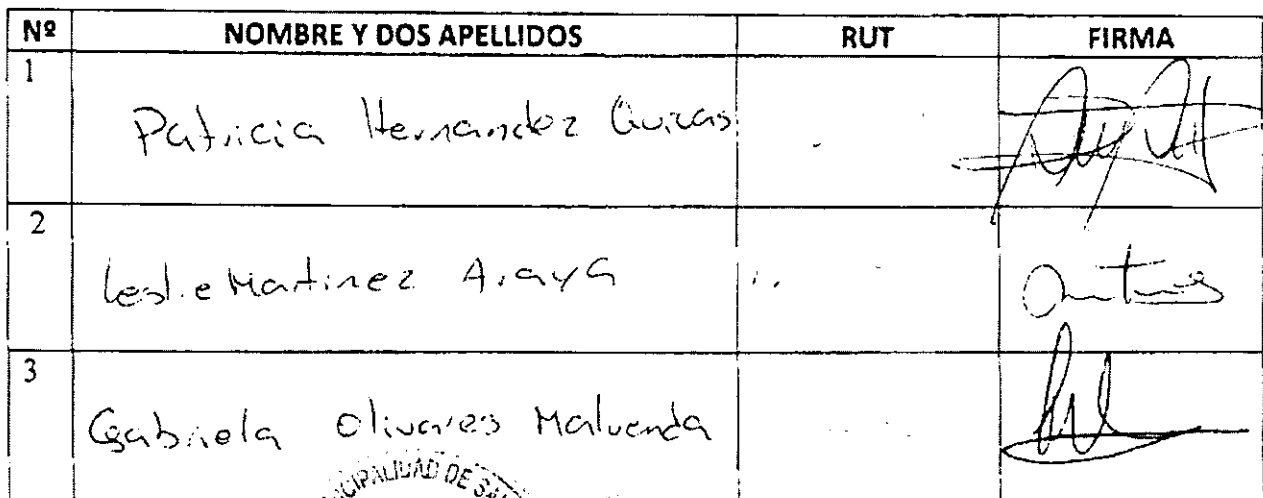 Nº NOMBRE Y DOS APELLIDOS RUT FIRMA
1 Patricia Hernandez
2 Leslie Martinez Araya
3 Gabriela Olivares Maluenda
CIPALIDAD DE SA